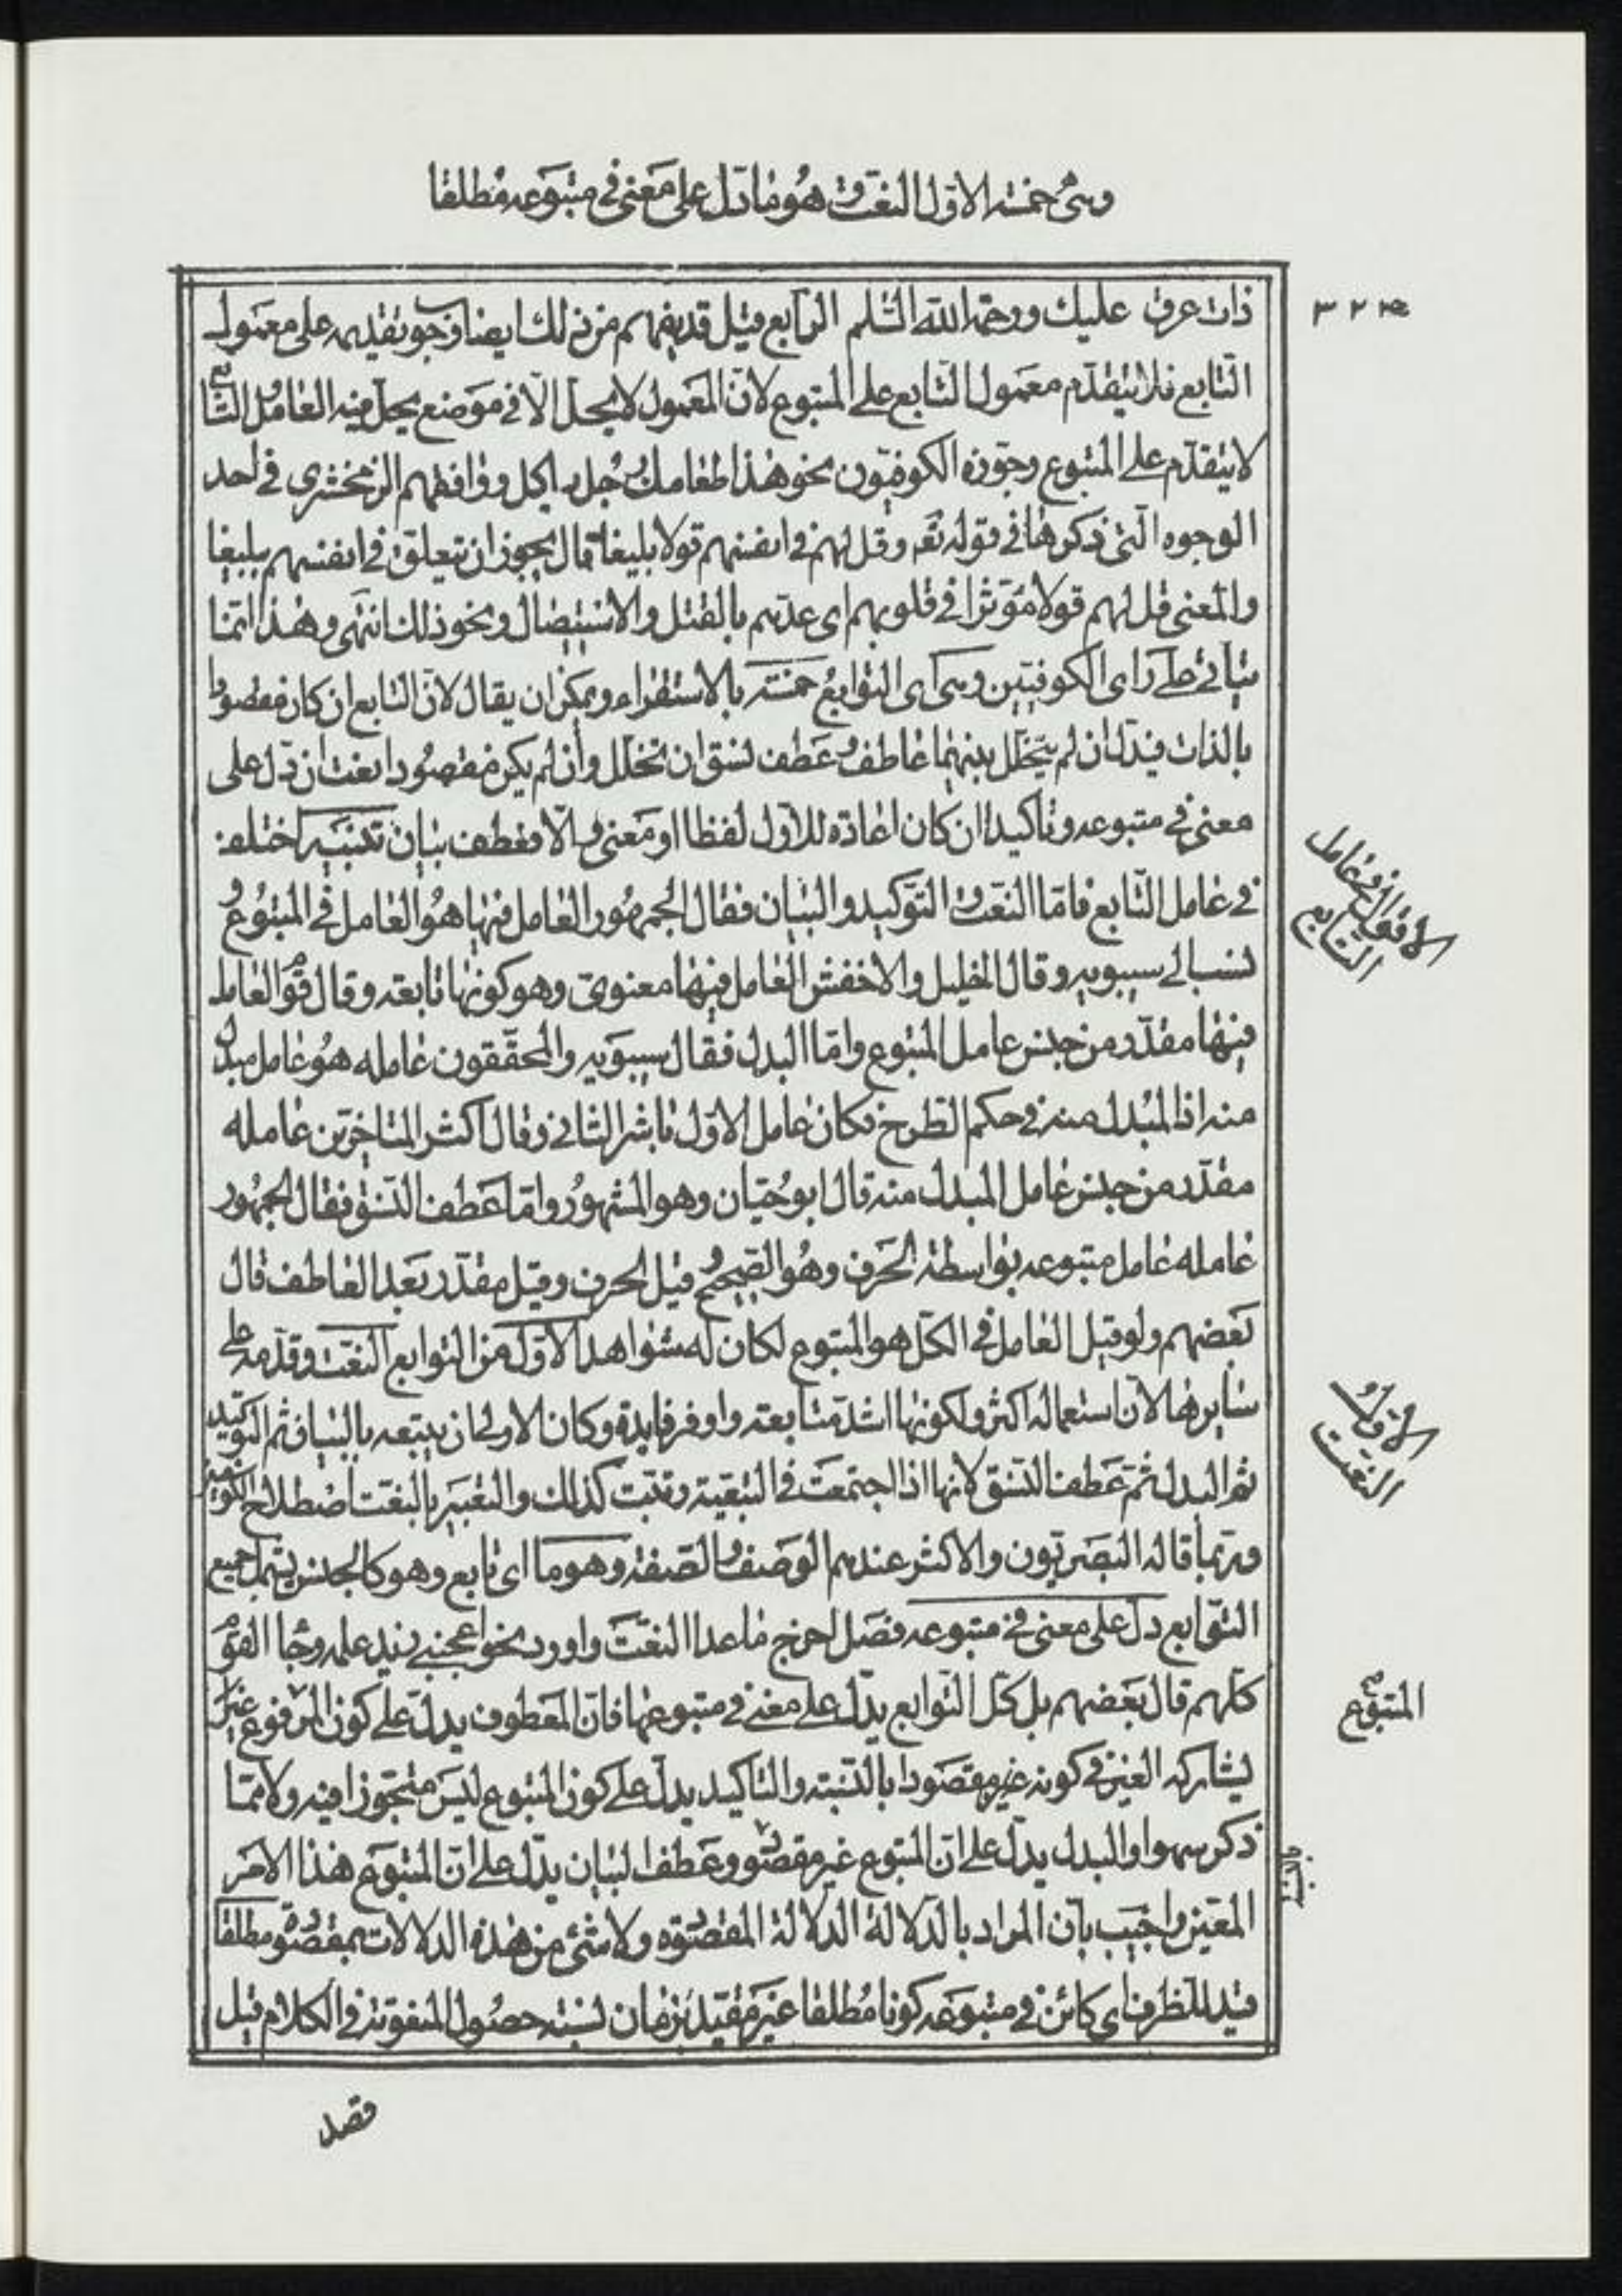 وهى خمسة الاول النعت وهو ما دل على معنى فى متبوعه مطلقا
ذات عرق عليك ورحمة الله السلم الرابع قيل قد يفهم من ذلك ايضا وجوب تقديمه على معمول
التابع فلا يتقدم معمول التابع على المتبوع لان المعمول لا يحل الا فى موضع يحل فيه العامل التابع
لا يتقدم على المتبوع وجوزه الكوفيون نحو هذا طعامك رجل ياكل ووافقهم الزمخشرى فى احد
الوجوه التى ذكرها فى قوله تعم وقل لهم فى انفسهم قولا بليغا قال يجوز ان يتعلق فى انفسهم ببليغا
والمعنى قل لهم قولا مؤثرا فى قلوبهم اى عدهم بالقتل والاستيصال ونحو ذلك انتهى وهذا انما
يتاتى على راى الكوفيين وهى اى التوابع خمسة بالاستقراء ويمكن ان يقال لان التابع ان كان مقصودا
بالذات فبدل ان لم يتخلل بينهما عاطف وعطف نسق ان تخلل وان لم يكن مقصودا نعت ان دل على
معنى فى متبوعه وتاكيدا ان كان اعادة للاول لفظا او معنى والا فعطف بيان تنبيه اختلف
فى عامل التابع فاما النعت والتوكيد والبيان فقال الجمهور العامل فيها هو العامل فى المتبوع و
نسب الى سيبويه وقال الخليل والاخفش العامل فيها معنوى وهو كونها تابعة وقال قوم العامل
فيها مقدر من جنس عامل المتبوع واما البدل فقال سيبويه والمحققون عامله هو عامل مبدل
منه اذ المبدل منه فى حكم الطرح فكان عامل الاول باشر الثانى وقال اكثر المتاخرين عامله
مقدر من جنس عامل المبدل منه قال ابو حيان وهو المشهور واما عطف النسق فقال الجمهور
عامله عامل متبوعه بواسطة الحرف وهو الصحيح وقيل الحرف وقيل مقدر بعد العاطف قال
بعضهم ولو قيل العامل فى الكل هو المتبوع لكان له شواهد الاول من التوابع النعت وقدمه على
سايرها لان استعماله اكثر ولكونها اشد متابعة واوفر فايدة وكان الاولى ان يتبعه بالبيان ثم التوكيد
ثم البدل ثم عطف النسق لانها اذا اجتمعت فى التبعية رتبت كذلك والتعبير بالنعت اصطلاح الكوفيين
وربما قاله البصريون والاكثر عندهم الوصف والصفة وهو ما اى تابع وهو كالجنس يشمل جميع
التوابع دل على معنى فى متبوعه فصل اخرج ما عدا النعت واورد نحو اعجبنى زيد علمه وجا القوم
كلهم قال بعضهم بل كل التوابع يدل على معنى فى متبوعها فان المعطوف يدل على كون المرفوع غيرا
يشاركه الغير فى كونه غير مقصودا بالنسبة والتاكيد يدل على كون المتبوع ليس متجوزا فيه ولا مما
ذكر سهوا والبدل يدل على ان المتبوع غير مقصود وعطف البيان يدل على ان المتبوع هذا الامر
المعين واجيب بان المراد بالدلالة الدلالة المقصودة ولا شئ من هذه الدلالات بمقصودة مطلقا
قيد للظرف اى كائن فى متبوعه كونا مطلقا غير مقيد بزمان نسبة حصول المنعوتة فى الكلام قبل
فصد
٣٢٣
الاقوال فى عامل
التابع
الاول
النعت
المتبوع